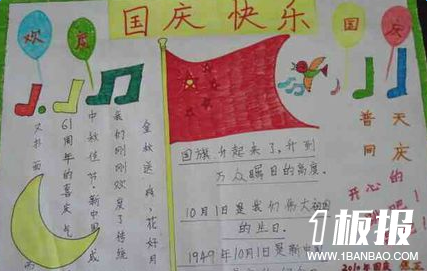 国庆快乐
欢度
国庆
普天
同庆
开心的
金秋送爽,花好月
我们刚刚欢度了传统
中秋佳节,新中国成
61周年的喜庆气
国旗升起来了,升到
万众瞩目的高度.
10月1日是我们伟大祖国
的生日.
1949年10月1日是新中
1板报
WWW.1BANBAO.COM